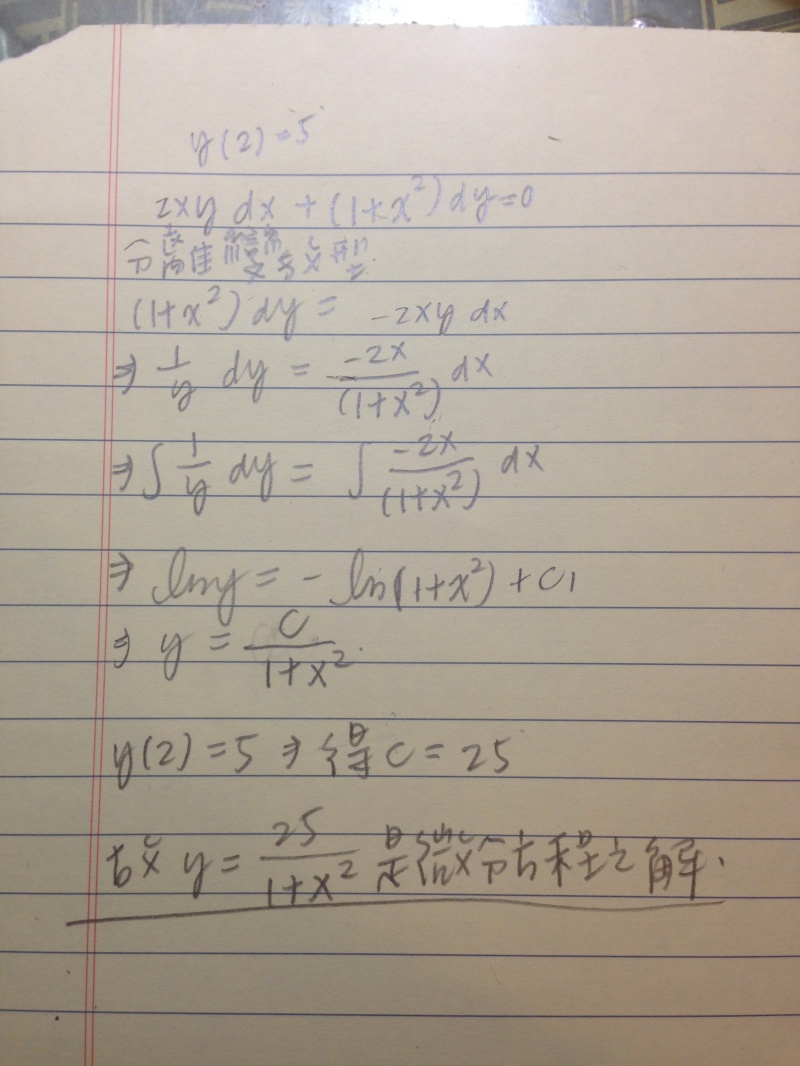 y(2)=5
2xy dx + (1+x²) dy=0
分離變數
(1+x²) dy = -2xy dx
⇒ 1/y dy = -2x/(1+x²) dx
⇒ ∫ 1/y dy = ∫ -2x/(1+x²) dx
⇒ ln y = - ln(1+x²) + C1
⇒ y = C/(1+x²)
y(2)=5 ⇒ 得 C = 25
故 y = 25/(1+x²) 是微分方程之解.